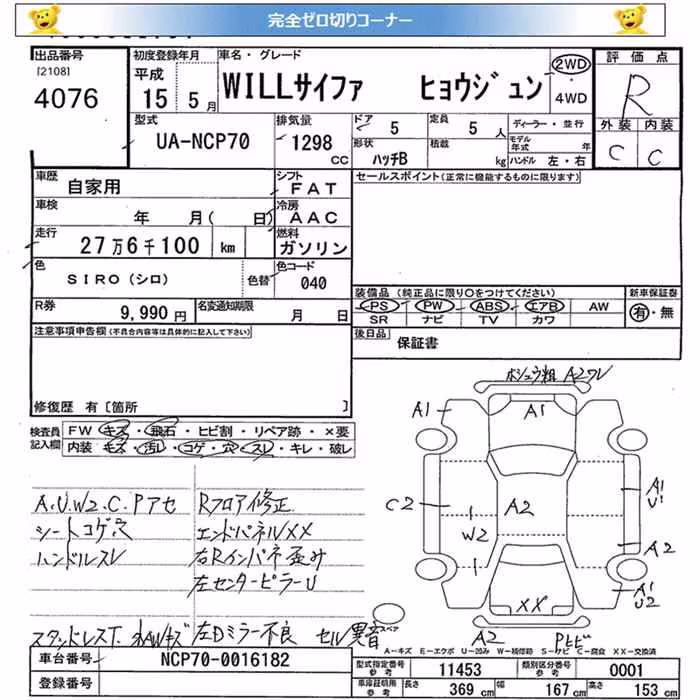 完全ゼロ切りコーナー
出品番号 初度登録年月 車名・グレード 評価点
[2108] 平成 WILLサイファ ヒョウジュン 2WD R
4076 15 5月 ・4WD
型式 排気量 ドア 5 定員 5人 ディーラー・並行 外装 内装
UA-NCP70 1298 CC 形状 ハッチB 積載 kg モデル年式 年 C C
ハンドル 左・右
車歴 自家用 シフト FAT セールスポイント(正常に機能するものに限ります)
車検 年 月( 日) 冷房 AAC
走行 27万6千100 km 燃料 ガソリン
色 SIRO(シロ) 色替 色コード 040
装備品(純正品に限り○をつけてください) 新車保証書
R券 9,990円 名変通知期限 月 日 PS PW ABS エアB AW 有・無
SR ナビ TV カワ
注意事項申告欄(不具合内容等は具体的に記入して下さい) 後日品 保証書
修復歴 有[箇所 ]
検査員記入欄 FW キズ・飛石・ヒビ割・リペア跡・×要
内装・キズ・汚レ・コゲ・穴・スレ・キレ・破レ
A.U.W2.C.Pアセ Rフロア修正
シートコゲ穴 エンドパネルXX
ハンドルスレ 右Rインパネ歪み
左センターピラーU
スタッドレスT. 左Dミラー不良 セル異音
A1 A1
C2 A2 A1
U1
W2 A2
XX A1
U2
A2 Pヒビ
スペア
A-キズ E-エクボ U-凹み W-補修跡 S-サビ C-腐食 XX-交換済
車台番号 NCP70-0016182 型式指定番号 参考 11453 類別区分番号 参考 0001
登録番号 車庫証明用 参考 長さ 369 cm 幅 167 cm 高さ 153 cm